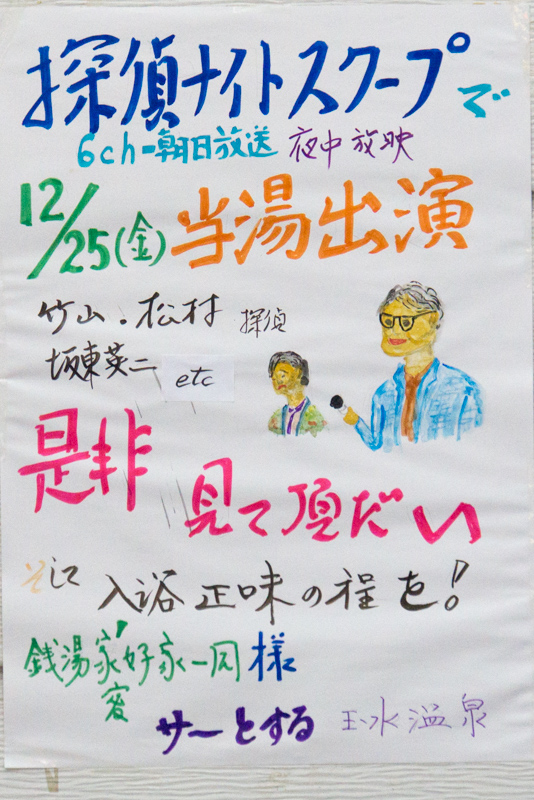 探偵ナイトスクープで
6ch-朝日放送 夜中放映
12/25(金)当湯出演
竹山・松村 探偵
坂東英二 etc
是非
見て頂だい
そして 入浴正味の程を!
銭湯家好家一同様
サーとする 玉水温泉